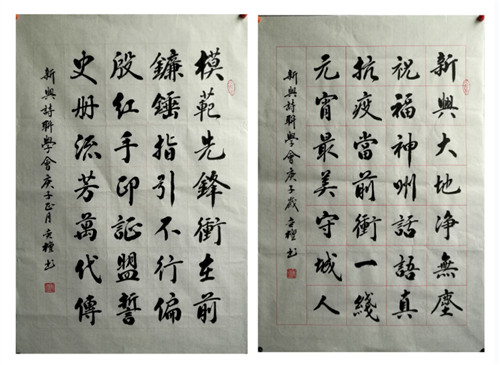 模範先鋒衝在前
鐮錘指引不行偏
殷紅手印証盟誓
史册流芳萬代傳
新興詩聯學會庚子正月书
新興大地净無塵
祝福神州話語真
抗疫當前衝一綫
元宵最美守城人
新興詩聯學會庚子歲书